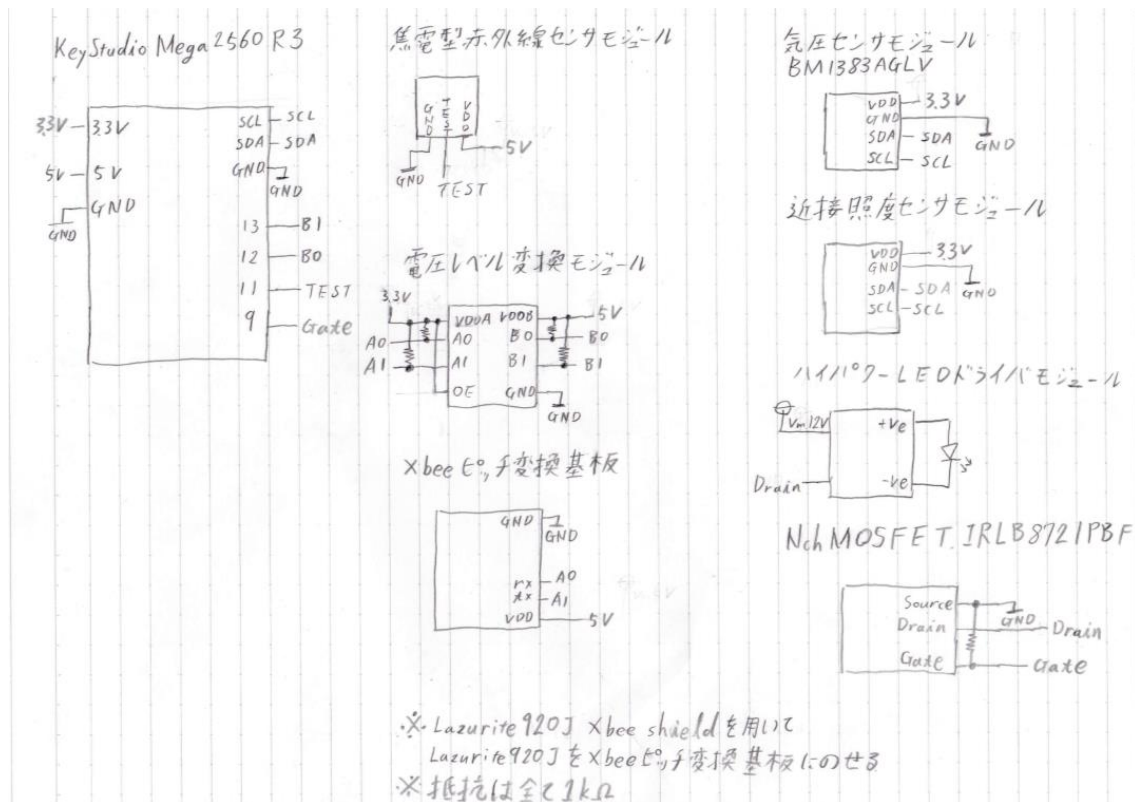 KeyStudio Mega 2560 R3
3.3V
3.3V
5V
5V
GND
GND
SCL
SCL
SDA
SDA
GND
GND
13
B1
12
B0
11
TEST
9
Gate
焦電型赤外線センサモジュール
GND
TEST
VDD
GND
TEST
5V
電圧レベル変換モジュール
3.3V
VDDA
VDDB
5V
A0
A0
B0
B0
A1
A1
B1
B1
OE
GND
GND
Xbeeピッチ変換基板
GND
GND
rx
A0
tx
A1
VDD
5V
気圧センサモジュール
BM1383AGLV
VDD
3.3V
GND
GND
SDA
SDA
SCL
SCL
近接照度センサモジュール
VDD
3.3V
GND
GND
SDA
SDA
SCL
SCL
ハイパワーLEDドライバモジュール
Vm 12V
+Ve
-Ve
Drain
Nch MOSFET. IRLB8721PBF
Source
GND
Drain
Drain
Gate
Gate
※ Lazurite920J Xbee shieldを用いて
Lazurite920JをXbeeピッチ変換基板にのせる
※ 抵抗は全て1kΩ